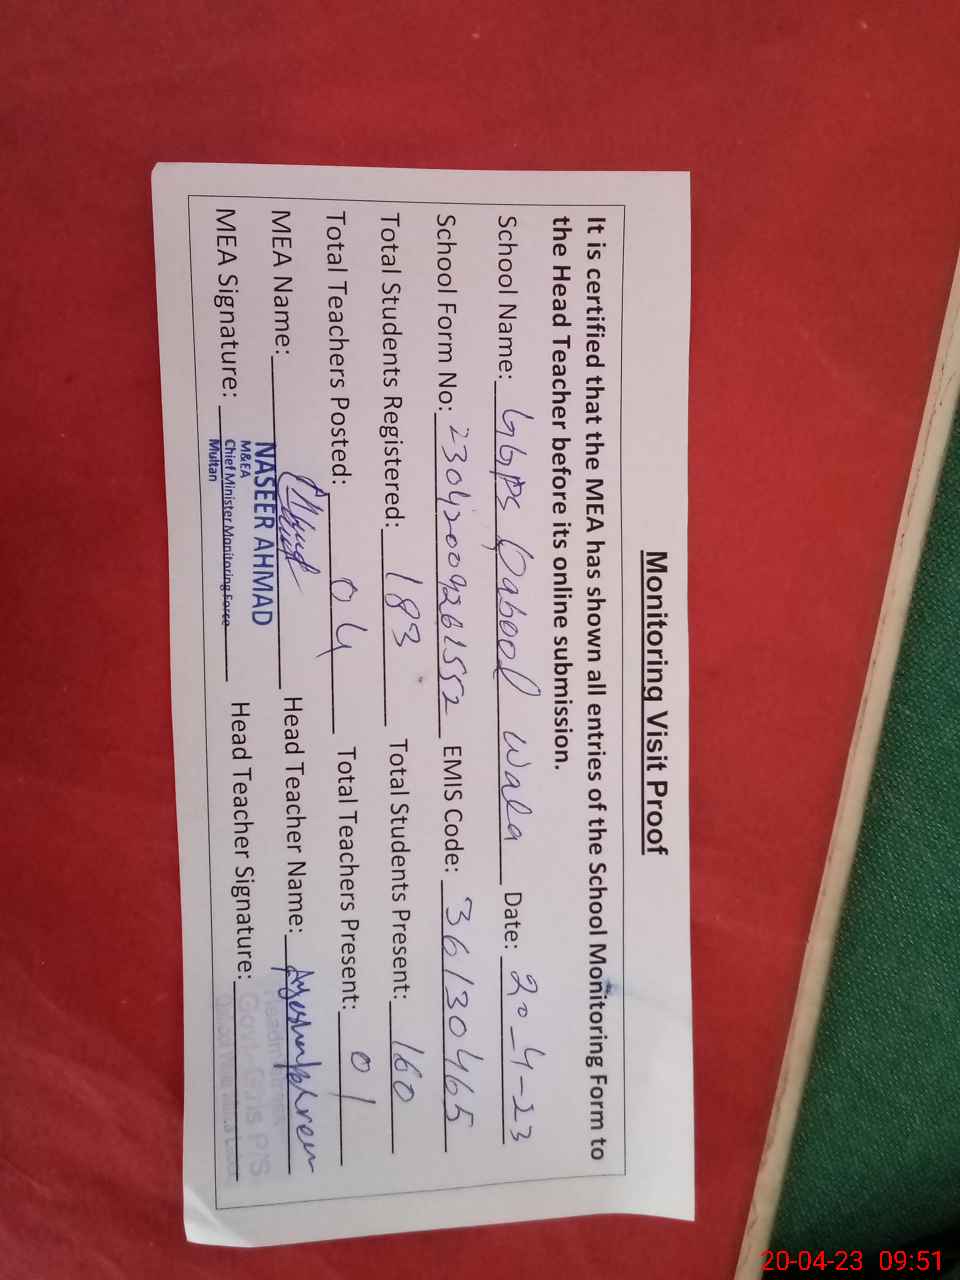 Monitoring Visit Proof
It is certified that the MEA has shown all entries of the School Monitoring Form to
the Head Teacher before its online submission.
School Name: GGPS Qabool Wala Date: 20-4-23
School Form No: 23042009261552 EMIS Code: 36130465
Total Students Registered: 183 Total Students Present: 160
Total Teachers Posted: 04 Total Teachers Present: 01
MEA Name: Head Teacher Name:
NASEER AHMAD
MEA Signature: Head Teacher Signature:
M&EA
Chief Minister Monitoring Force
Multan
20-04-23 09:51